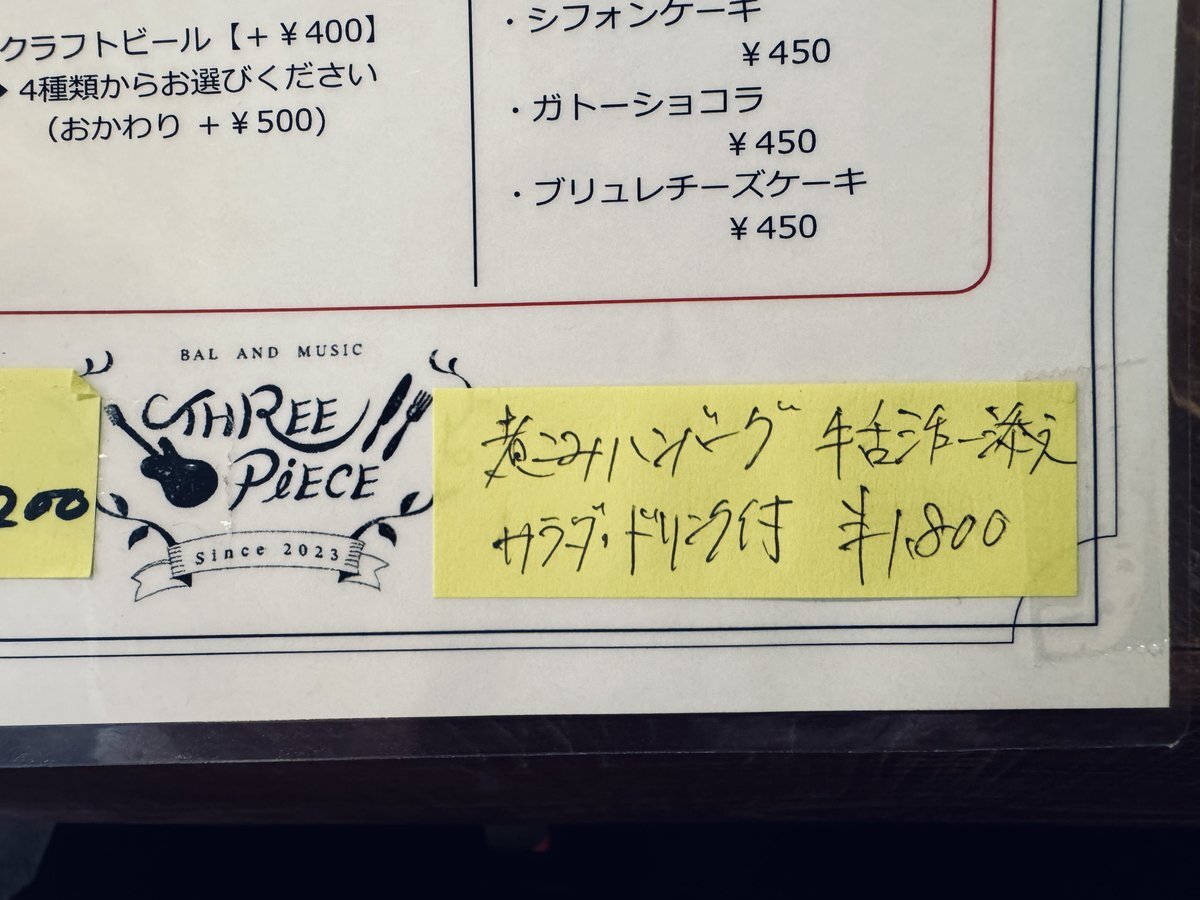 クラフトビール【+¥400】
4種類からお選びください
(おかわり +¥500)
・シフォンケーキ
¥450
・ガトーショコラ
¥450
・ブリュレチーズケーキ
¥450
BAL AND MUSIC
THREE
PiECE
Since 2023
200
煮こみハンバーグ 牛舌シチュー添え
サラダ・ドリンク付 ¥1,800